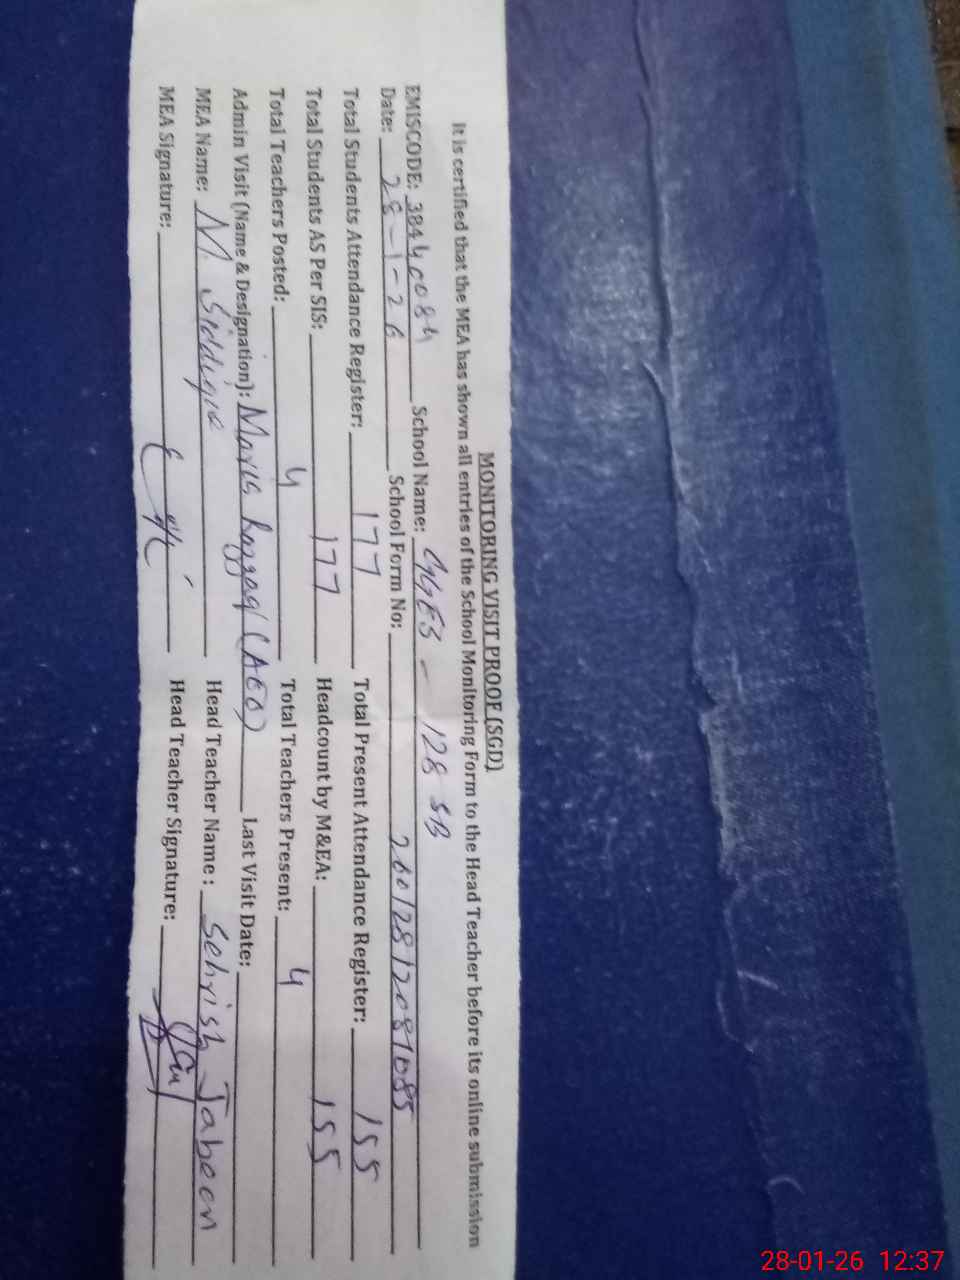 MONITORING VISIT PROOF (SGD)
It is certified that the MEA has shown all entries of the School Monitoring Form to the Head Teacher before its online submission
EMISCODE: 38440084 School Name: GGES - 128 SB
Date: 28-1-26 School Form No: 2601281208
Total Students Attendance Register: 177 Total Present Attendance Register: 155
Total Students AS Per SIS: 177 Headcount by M&EA: 155
Total Teachers Posted: 4 Total Teachers Present: 4
Admin Visit (Name & Designation): Razzaq (AEO) Last Visit Date:
MEA Name: M. Siddique Head Teacher Name: Sehrish Jabeen
MEA Signature: Head Teacher Signature:
28-01-26 12:37